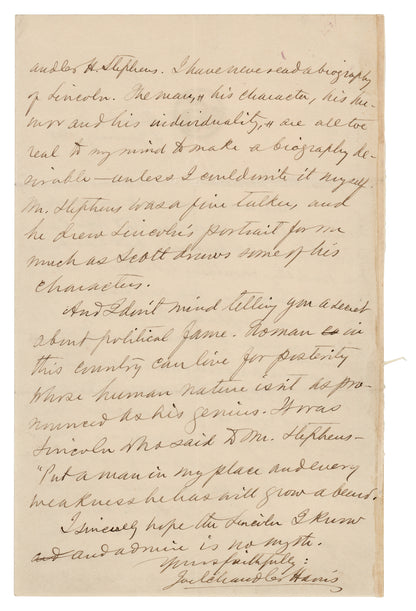 ander H. Stephens. I have never read a biography
of Lincoln. The man, his character, his hu-
mor and his individuality, are all too
real to my mind to make a biography de-
sirable — unless I could write it myself.
Mr. Stephens was a fine talker, and
he drew Lincoln's portrait for me
much as Scott draws some of his
characters.
And I don't mind telling you a secret
about political fame. No man in
this country can live for posterity
whose human nature isn't as pro-
nounced as his genius. It was
Lincoln who said to Mr. Stephens —
"Put a man in my place and every
weakness he has will grow a beard.
I sincerely hope the Lincoln I know
and and admire is no myth.
Yours faithfully:
Joel Chandler Harris